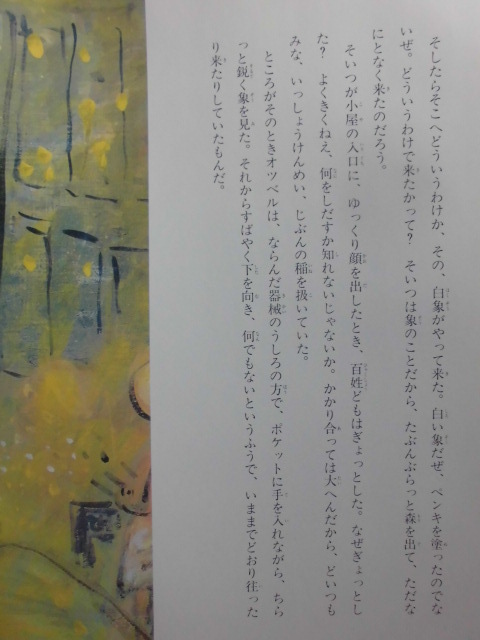 そしたらそこへどういうわけか、その、白象がやって来た。白い象だぜ、ペンキを塗ったのでな
いぜ。どういうわけで来たかって？　そいつは象のことだから、たぶんぶらっと森を出て、ただな
にとなく来たのだろう。
そいつが小屋の入口に、ゆっくり顔を出したとき、百姓どもはぎょっとした。なぜぎょっとし
た？　よくきくねえ、何をしだすか知れないじゃないか。かかり合っては大へんだから、どいつも
みな、いっしょうけんめい、じぶんの稲を扱いていた。
ところがそのときオツベルは、ならんだ器械のうしろの方で、ポケットに手を入れながら、ちら
っと鋭く象を見た。それからすばやく下を向き、何でもないというふうで、いままでどおり往った
り来たりしていたもんだ。